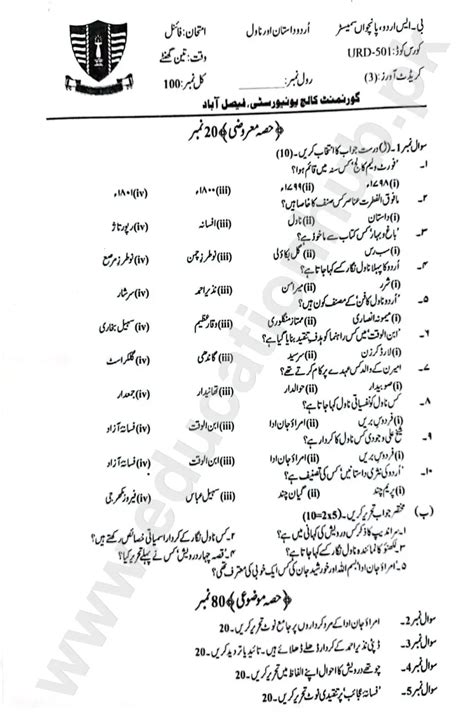 بی۔ایس اردو، پانچواں سمیسٹر اُردو داستان اور ناول امتحان: فائنل
کورس کوڈ: URD-501 وقت: تین گھنٹے
کریڈٹ آورز: (3) رول نمبر: کل نمبر: 100
گورنمنٹ کالج یونیورسٹی، فیصل آباد
﴿حصہ معروضی﴾ 20 نمبر
سوال نمبر 1۔ (ا) درست جواب کا انتخاب کریں۔ (10)
۱۔ 'فورٹ ولیم کالج' کس سنہ میں قائم ہوا؟
(i) ۱۷۹۸ء (ii) ۱۷۹۹ء (iii) ۱۸۰۰ء (iv) ۱۸۰۱ء
۲۔ مافوق الفطرت عناصر کس صنف کا خاصا ہیں؟
(i) داستان (ii) ناول (iii) افسانہ (iv) رپورتاژ
۳۔ 'باغ و بہار' کس کتاب سے ماخوذ ہے؟
(i) سب رس (ii) گل بکاؤلی (iii) نوطرز چمن (iv) نوطرز مرصع
۴۔ اُردو کا پہلا ناول نگار کسے کہا جاتا ہے؟
(i) شرر (ii) میر امن (iii) نذیر احمد (iv) سرشار
۵۔ 'اُردو ناول کا فن' کے مصنف کون ہیں؟
(i) میمونہ انصاری (ii) ممتاز منگلوری (iii) وقار عظیم (iv) سہیل بخاری
۶۔ 'ابن الوقت' میں کس راہنما کو ہدفِ تنقید بنایا گیا ہے؟
(i) لارڈ کرزن (ii) سرسید (iii) گاندھی (iv) گلکرسٹ
۷۔ امیرن کے والد کس عہدے پر کام کرتے تھے؟
(i) صوبیدار (ii) حوالدار (iii) تھانیدار (iv) جمعدار
۸۔ کس ناول کو نفسیاتی ناول کہا جاتا ہے؟
(i) فردوس بریں (ii) امراؤ جان ادا (iii) ابن الوقت (iv) فسانۂ آزاد
۹۔ شیخ علی وجودی کس ناول کا کردار ہے؟
(i) فردوس بریں (ii) امراؤ جان ادا (iii) ابن الوقت (iv) فسانۂ آزاد
۱۰۔ 'اُردو کی نثری داستانیں' کس کی تصنیف ہے؟
(i) پریم چند (ii) گیان چند (iii) سہیل عباس (iv) فیروز مکھرجی
(ب) مختصر جواب تحریر کریں۔ (2x5=10)
۱۔ سراندیپ کا ذکر کس درویش کی کہانی میں ہے؟ ۲۔ کس ناول نگار کے کردار اسمیاتی خصائص رکھتے ہیں؟
۳۔ لکھنؤ کا نمائندہ ناول نگار کسے کہا جاتا ہے؟ ۴۔ قصہ چہار درویش کس نے پہلے تحریر کیا؟
۵۔ امراؤ جان ادا بسم اللہ اور خورشید جان کی کس ایک خوبی کی معترف تھی؟
﴿حصہ موضوعی﴾ 80 نمبر
سوال نمبر 2۔ امراؤ جان ادا کے مرد کرداروں پر جامع نوٹ تحریر کریں۔ 20
سوال نمبر 3۔ ڈپٹی نذیر احمد کے کردار ڈھلے ڈھلائے ہیں۔ تائید یا تردید کریں۔ 20
سوال نمبر 4۔ چوتھے درویش کا احوال اپنے الفاظ میں تحریر کریں۔ 20
سوال نمبر 5۔ 'فسانۂ عجائب' پر تنقیدی نوٹ تحریر کریں۔ 20
www.educationhub.pk